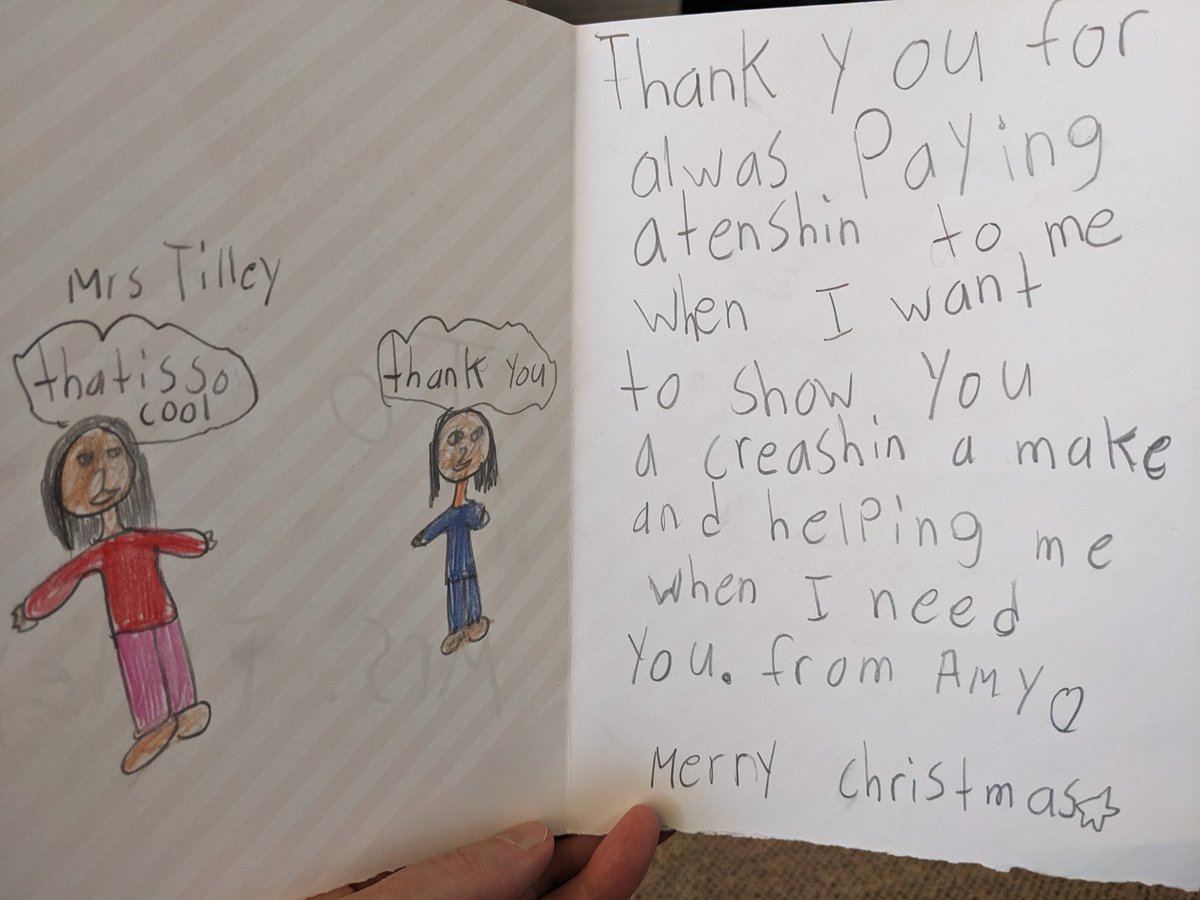 Mrs Tilley
that is so
cool
thank you
Thank you for
alwas Paying
atenshin to me
when I want
to show you
a creashin a make
and helping me
when I need
you. from AMY
Merry christmas